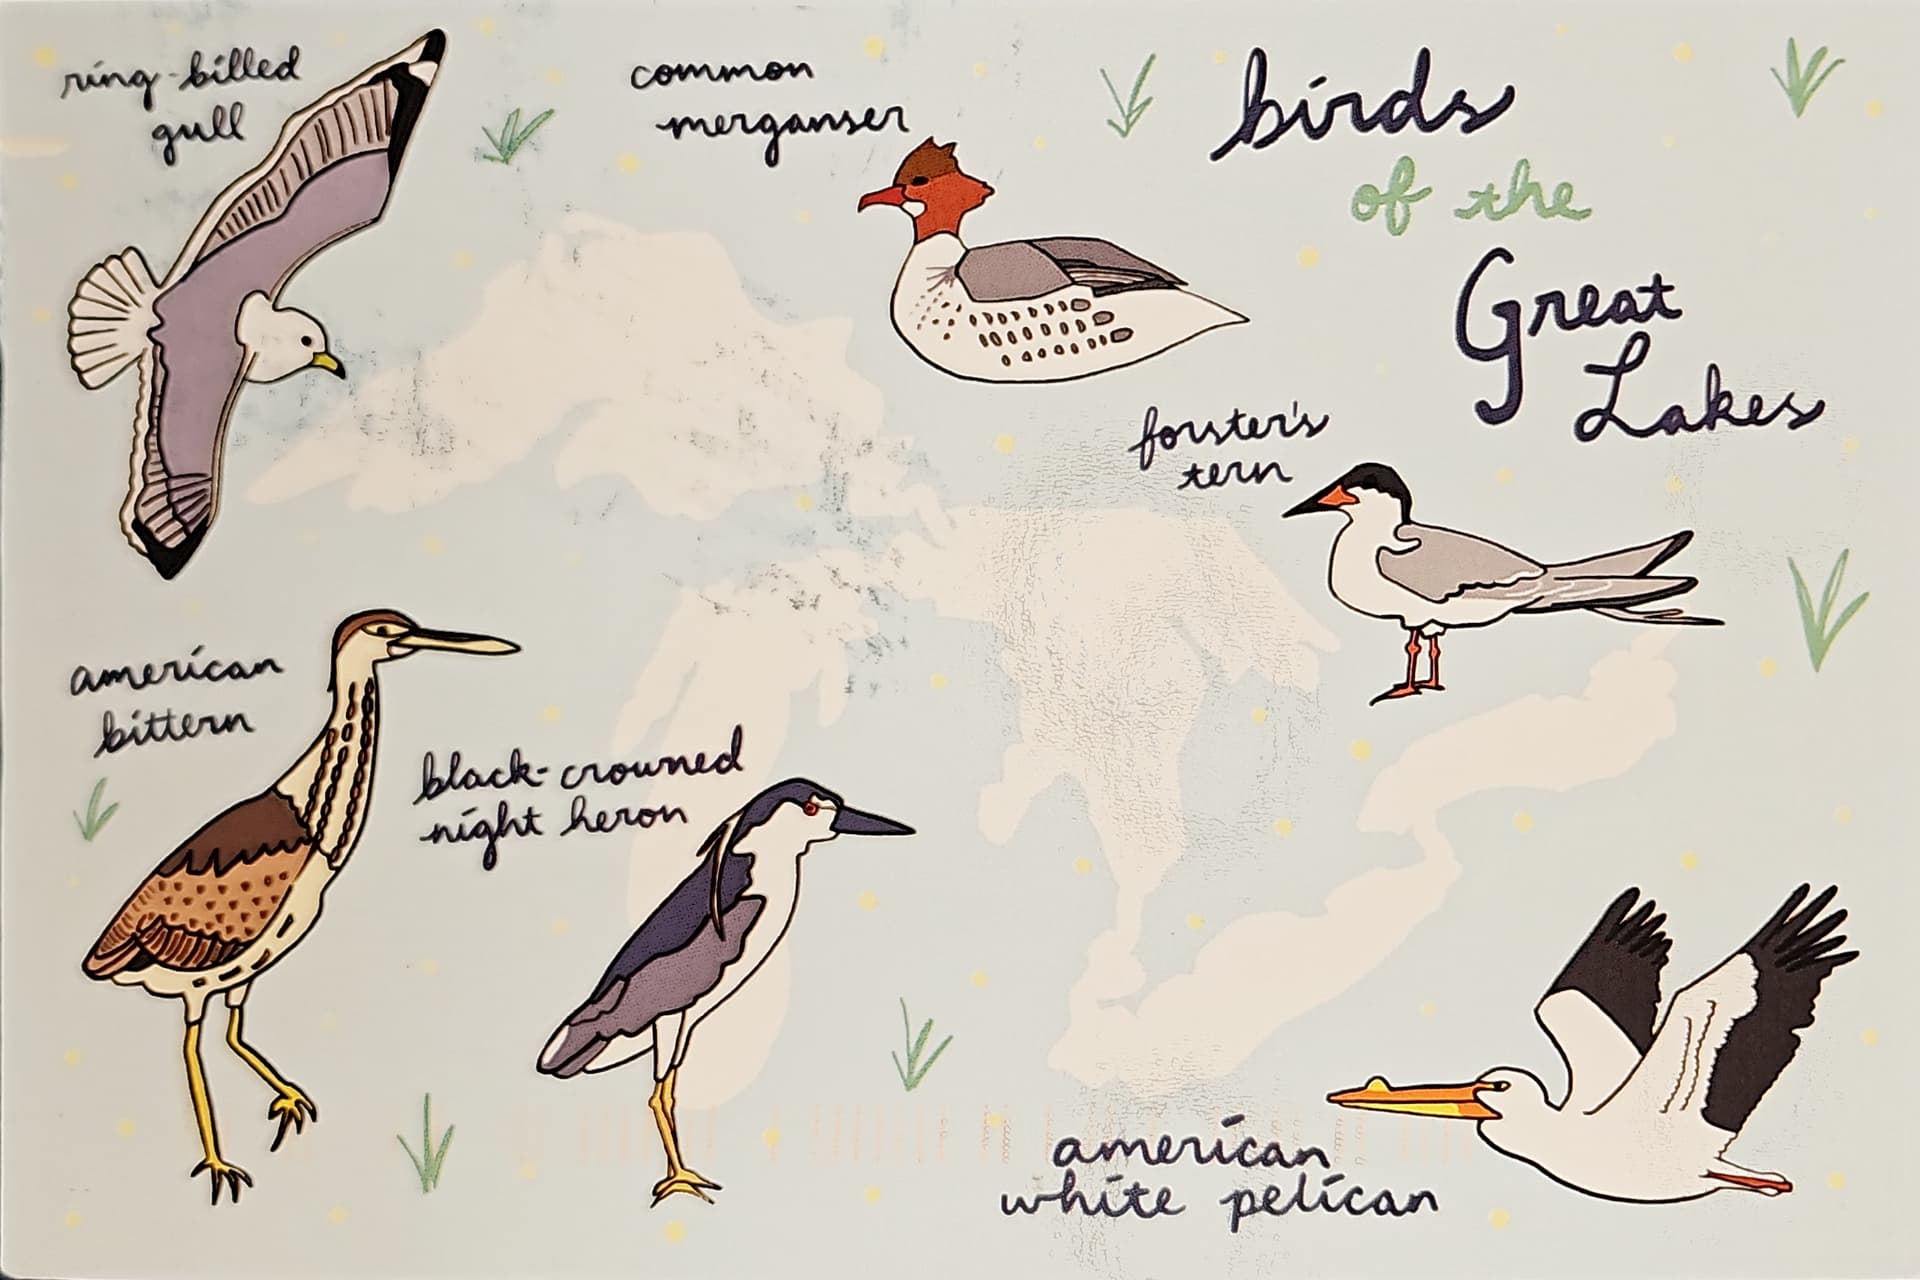 ring-billed
gull
common
merganser
birds
of the
Great
Lakes
forster's
tern
american
bittern
black-crowned
night heron
american
white pelican